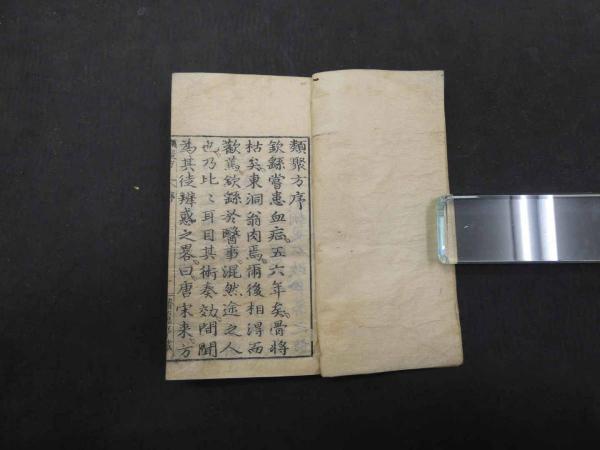 類聚方序
欽繇嘗患血疝五六年矣骨將
枯矣東洞翁肉焉爾後相得而
歡焉欽繇於醫事混然途之人
也乃比〻耳目其術奏効間聞
為其徒辨惑之畧曰唐宋来方